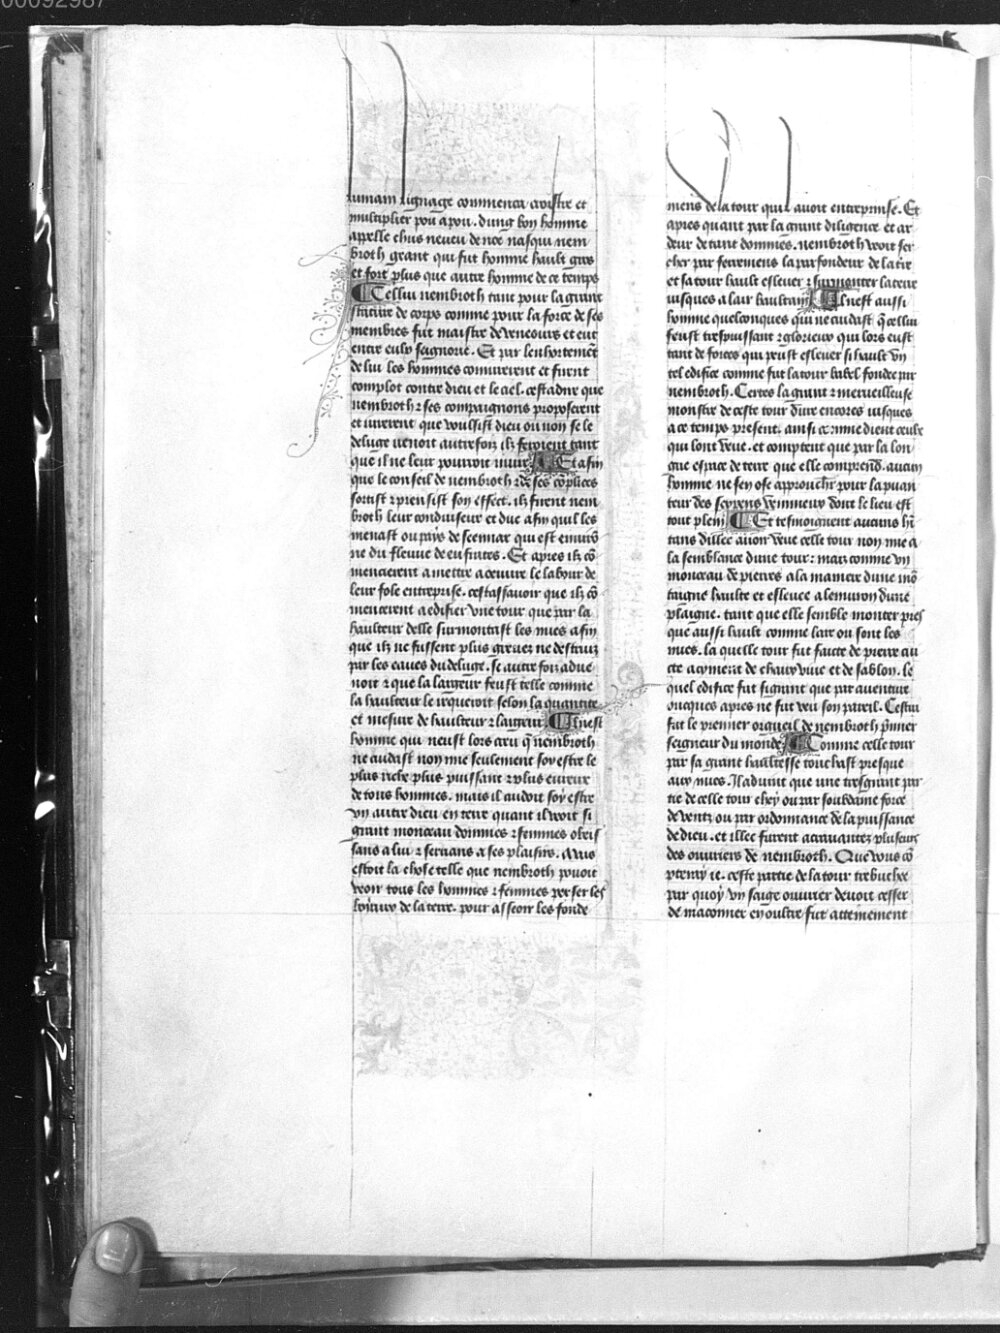 00092987
humain lignage commenca croistre et
multiplier pou a pou. dung bon homme
appelle chus neueu de noe nasqui nem
broth geant qui fut homme hault gros
et fort plus que autre homme de ce temps
Cellui nembroth tant pour la grant
stature de corps comme pour la force de ses
membres fut maistre de veneurs et eut
entre eulx seignorie. Et par lenhortemēt
de lui les hommes coniurerent et firent
complot contre dieu et le ciel. cestadire que
nembroth ⁊ ses compaignons proposerent
et iurerent que voulsist dieu ou non se le
deluge venoit autrefoiz ilz feroient tant
que il ne leur pourroit nuire Et afin
que le conseil de nembroth ⁊ de ses cōplices
sortist ⁊ prensist son effect. ilz firent nem
broth leur conduiseur et duc afin quil les
menast ou pays de seennar qui est enuirō
ne du fleuue de eufrates. Et apres ilz cō
mencierent a mettre a oeuure le labour de
leur fole entreprise. cestassauoir que ilz cō
mencierent a edifier vne tour que par la
haulteur delle surmontast les nues afin
que ilz ne fussent plus greuez ne destruiz
par les eaues du deluge. se autrefoiz adue
noit ⁊ que la largeur feust telle comme
la haulteur le requeroit selon la quantite
et mesure de haulteur ⁊ largeur Il nest
homme qui neust lors creu q̄ nembroth
ne cuidast non mie seulement soy estre le
plus riche plus puissant ⁊ plus eureux
de tous hommes. mais il cuidoit soy estre
vn autre dieu en terre quant il veoit si
grant monceau dommes ⁊ femmes obeis
sans a lui ⁊ seruans a ses plaisirs. Mais
estoit la chose telle que nembroth pouoit
veoir tous les hommes ⁊ femmes perser les
de la terre. pour asseoir les fonde
mens de la tour quil auoit entreprinse. Et
apres quant par la grant diligence et ar
deur de tant dommes. nembroth veoit ser
cher par ferremens la parfondeur de la tr̄e
et sa tour hault esleuer ⁊ surmonter la terre
iusques a lair haultain Il nest aussi
homme quelconques qui ne cuidast q̄ cellui
feust trespuissant ⁊ glorieux qui lors eust
tant de forces qui peust esleuer si hault vn
tel edifice comme fut la tour babel fondee par
nembroth. Certes la grant ⁊ merueilleuse
monstre de ceste tour dure encores iusques
a ce temps present. ainsi comme dient ceulx
qui lont veue. et comptent que par la lon
gue espace de terre que elle comprend. aucun
homme ne sen ose approuchr̄ pour la puan
teur des serpens venimeux dont le lieu est
tout plein Et tesmoignent aucuns hī
tans dillec auoir veue celle tour non mie a
la semblance dune tour: maiz comme vn
monceau de pierres a la maniere dune mō
taigne haulte et esleuee a lenuiron dune
plaigne. tant que elle semble monter pres
que aussi hault comme lair ou sont les
nues. la quelle tour fut faicte de pierre cu
cte a ciment de chaux viue et de sablon. le
quel edifice fut si grant que par auenture
oncques apres ne fut veu son pareil. Cestui
fut le premier orgueil de nembroth p̄mier
seigneur du monde Comme celle tour
par sa grant haultesse touchast presque
aux nues. Il aduint que une tresgrant par
tie de celle tour chey ou par soubdaine force
de ventz ou par ordonnance de la puissance
de dieu. et illec furent acrauantez pluseurs
des ouuriers de nembroth. Que vous cō
pteray ie. ceste partie de la tour trebuchee
par quoy vn saige ouurier deuoit cesser
de maconner en oultre fut attemement